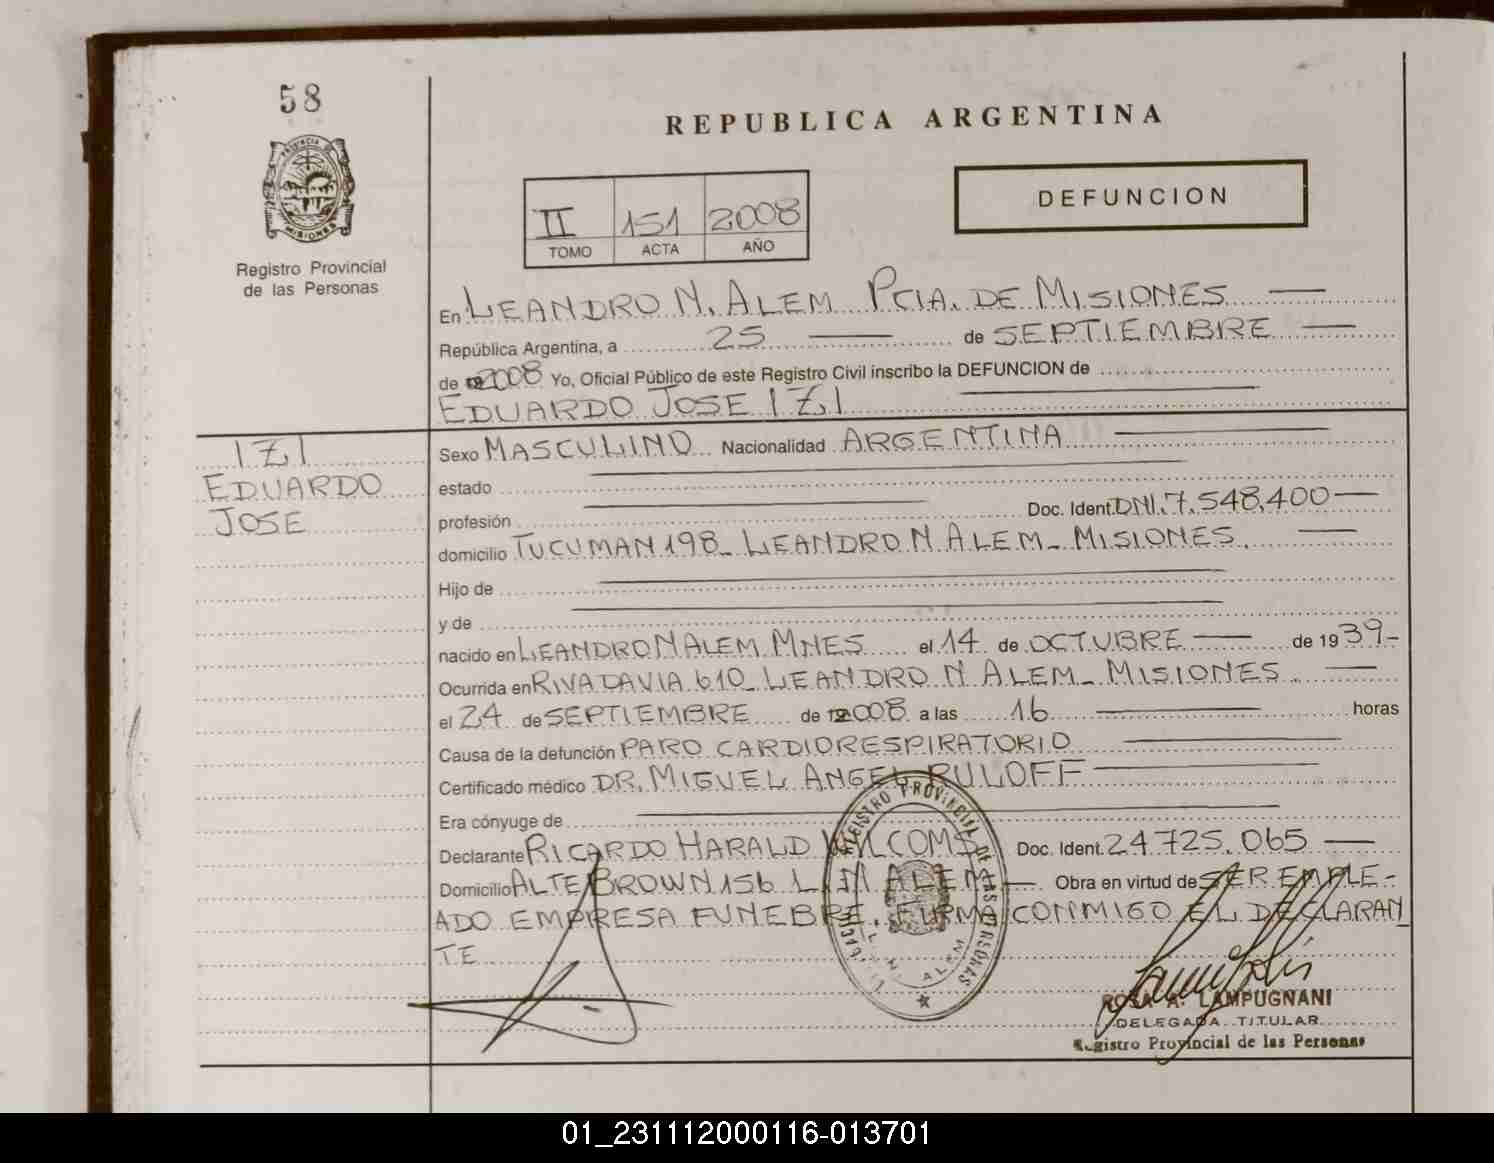 58
REPUBLICA ARGENTINA
PROVINCIA DE
MISIONES
Registro Provincial
de las Personas
II 151 2008
TOMO ACTA AÑO
DEFUNCION
En LEANDRO N. ALEM PCIA. DE MISIONES
República Argentina, a 25 de SEPTIEMBRE
de 2008 Yo, Oficial Público de este Registro Civil inscribo la DEFUNCION de
EDUARDO JOSE IZI
IZI
EDUARDO
JOSE
Sexo MASCULINO Nacionalidad ARGENTINA
estado
profesión Doc. Ident. DNI. 7.548.400
domicilio TUCUMAN 198_ LEANDRO N ALEM_ MISIONES.
Hijo de
y de
nacido en LEANDRO N ALEM MNES el 14 de OCTUBRE de 1939-
Ocurrida en RIVADAVIA 610_ LEANDRO N ALEM_ MISIONES
el 24 de SEPTIEMBRE de 2008 a las 16 horas
Causa de la defunción PARO CARDIORESPIRATORIO
Certificado médico DR. MIGUEL ANGEL RULOFF
Era cónyuge de
Declarante RICARDO HARALD Doc. Ident. 24.725.065
Domicilio ALTE BROWN 156 L.N ALEM Obra en virtud de SER EMPLE-
ADO EMPRESA FUNEBRE. FIRMA CONMIGO EL DECLARAN_
TE
REGISTRO PROVINCIAL DE LAS PERSONAS
L. N. ALEM
ROSA A. LAMPUGNANI
DELEGADA TITULAR
Registro Provincial de las Personas
01_231112000116-013701